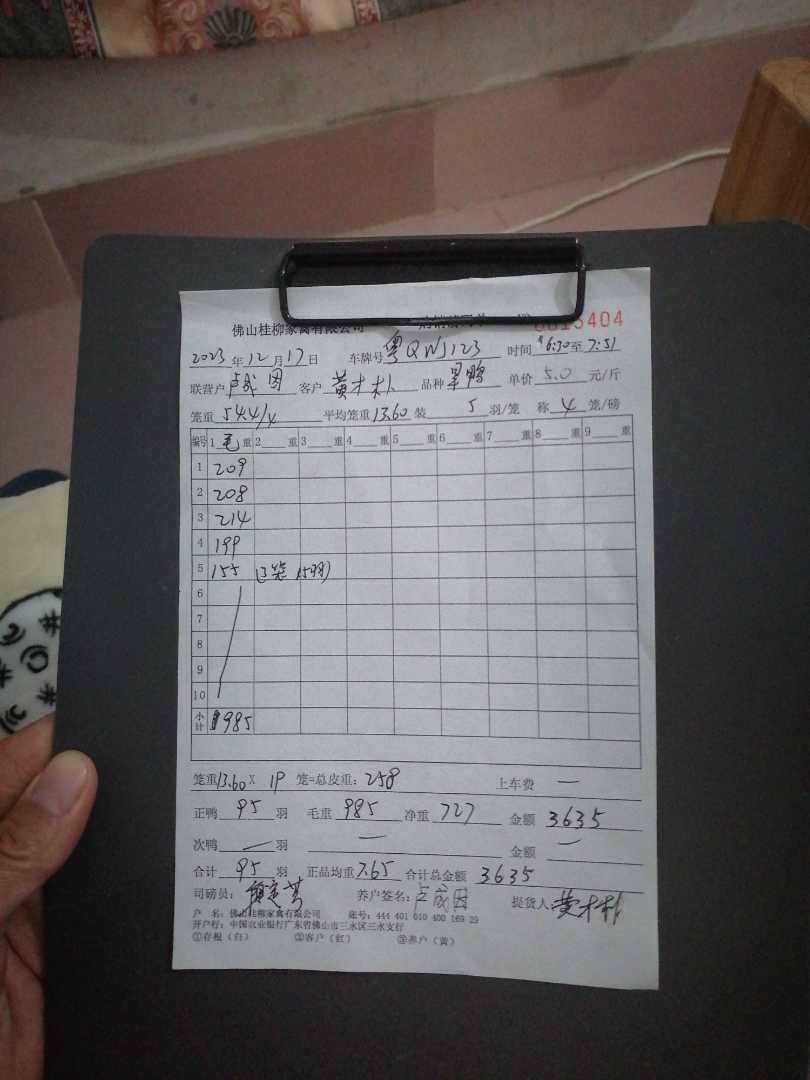 佛山桂柳家禽有限公司 0015404
2023年12月17日 车牌号粤QWJ123 时间 6:30至7:51
联营户 卢成因 客户 黄才朴 品种 单价 5.0 元/斤
笼重 54.4/4 平均笼重13.60 装 5 羽/笼 称 4 笼/磅
编号 1 毛 重 2 重 3 重 4 重 5 重 6 重 7 重 8 重 9 重
1 209
2 208
3 214
4 199
5 155 (3笼 15羽)
6
7
8
9
10
小计 985
笼重13.60X 19 笼=总皮重: 258 上车费 —
正鸭 95 羽 毛重 985 净重 727 金额 3635
次鸭 — 羽 — 金额 —
合计 95 羽 正品均重7.65 合计总金额 3635
司磅员: 养户签名: 卢成因 提货人: 黄才朴
户 名: 佛山桂柳家禽有限公司 账号: 444 401 010 400 169 29
开户行: 中国农业银行广东省佛山市三水区三水支行
①存根(白) ②客户(红) ③养户(黄)